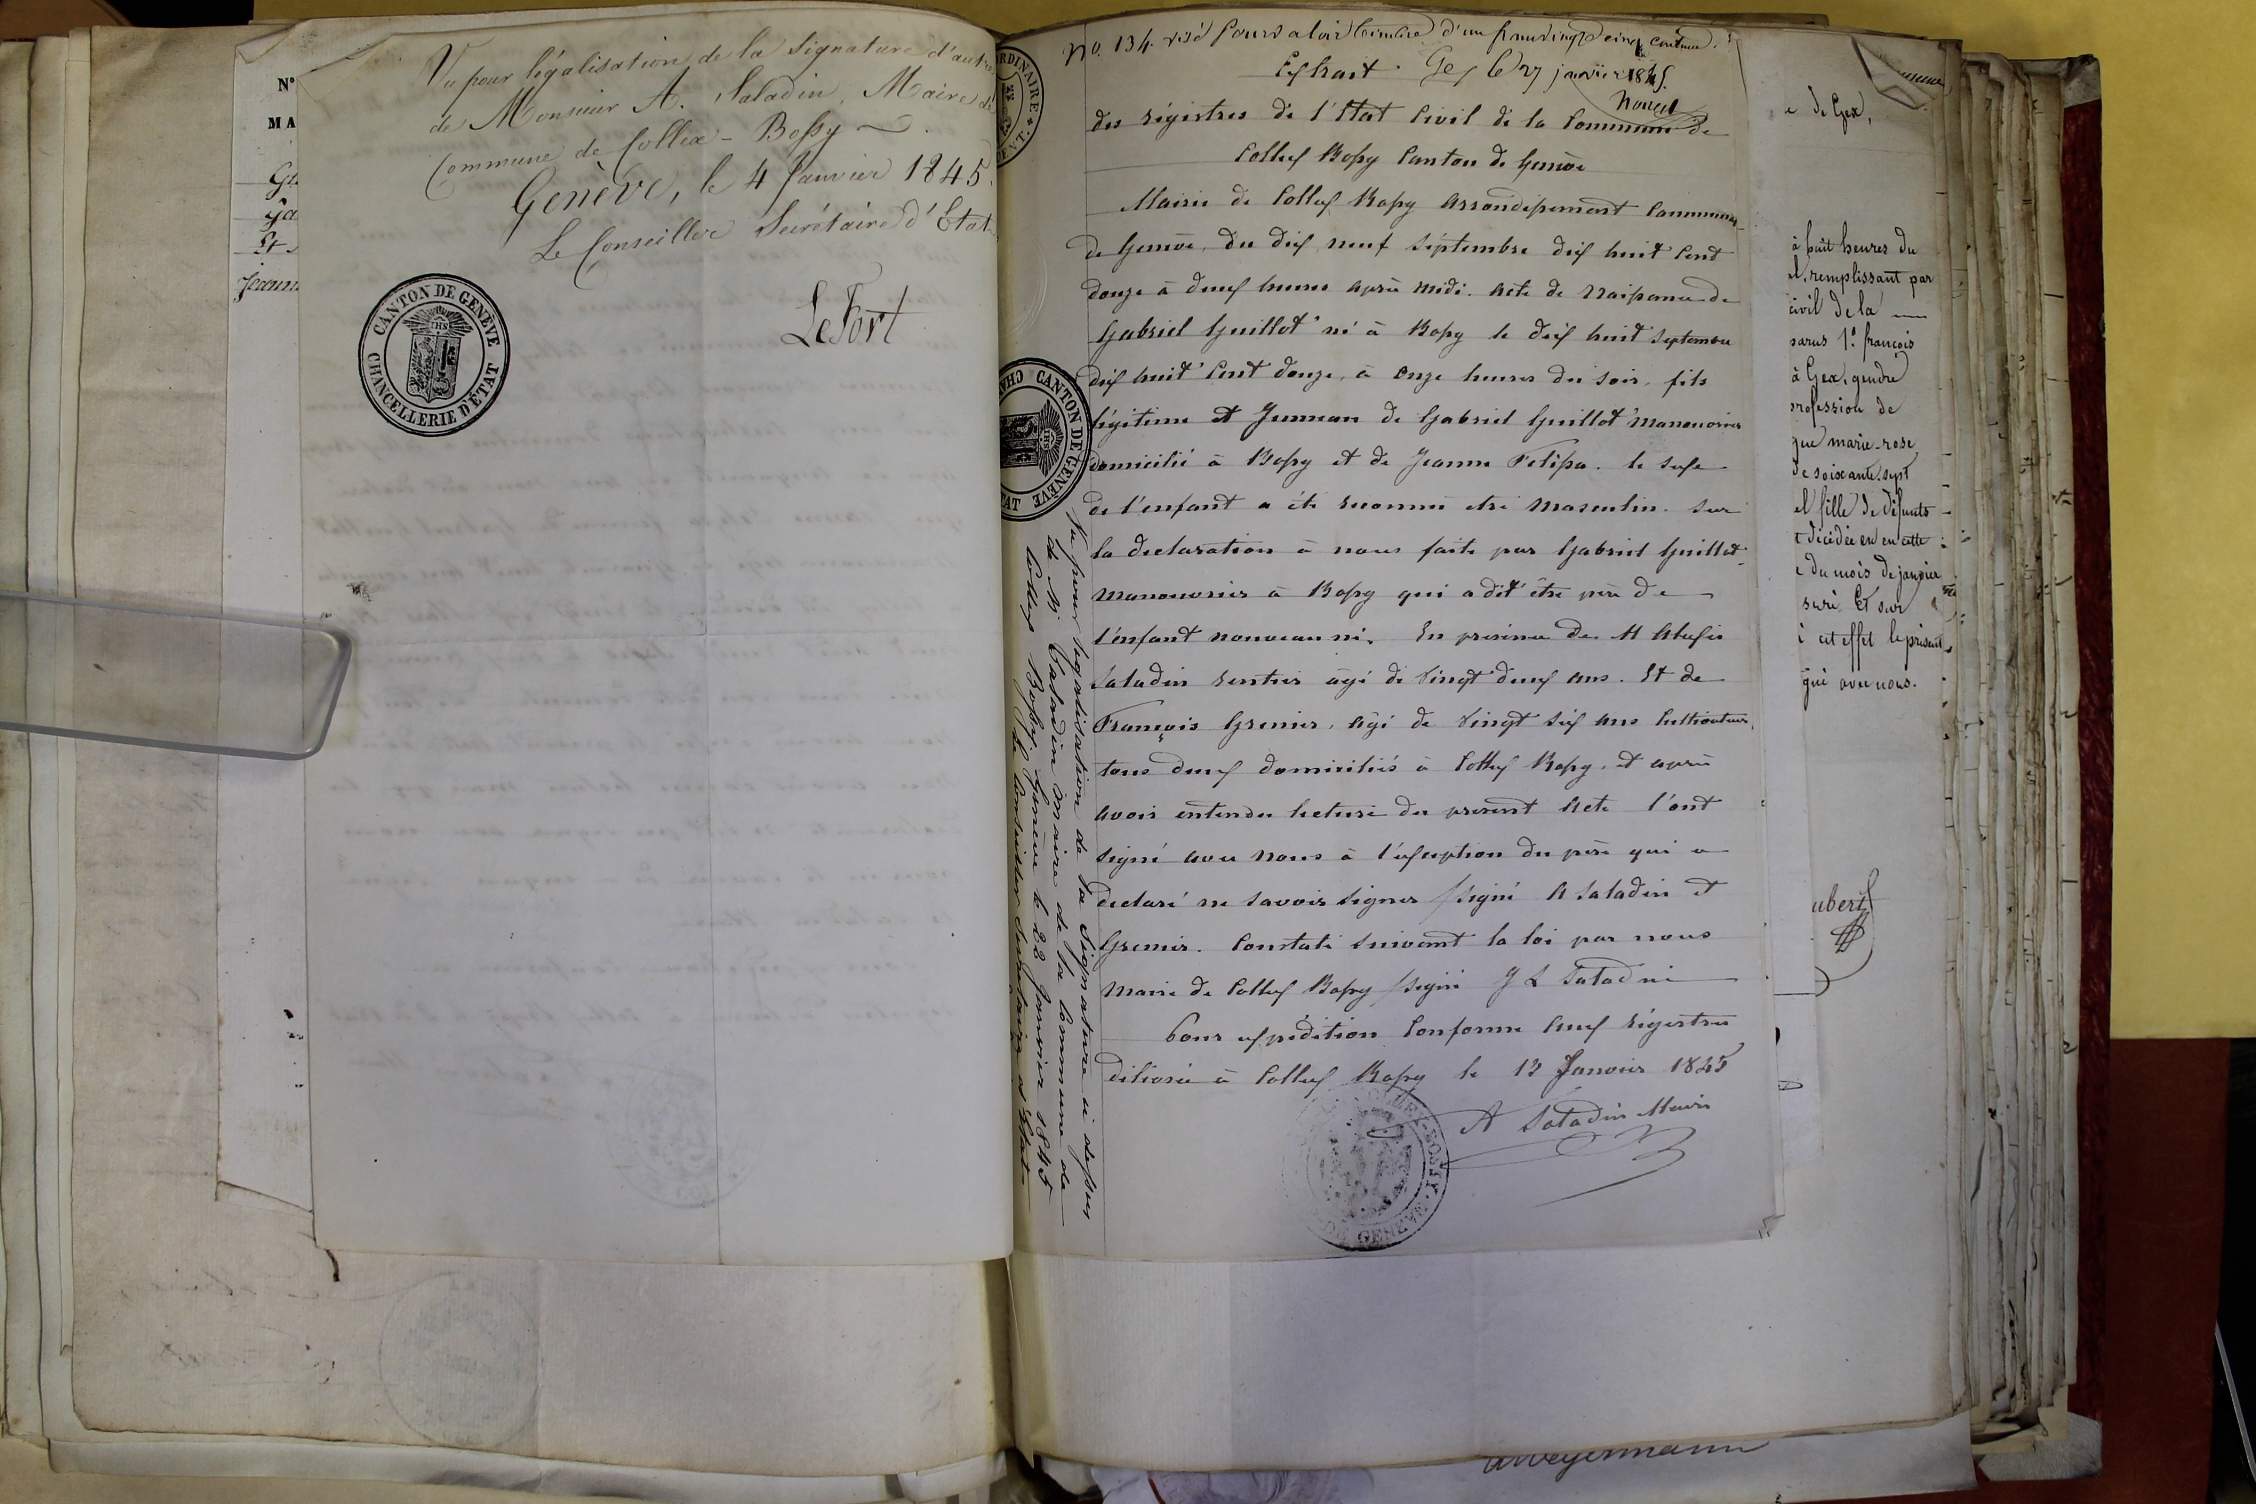 Vu pour légalisation de la signature d'autre
de Monsieur A. Saladin, Maire de
Commune de Collex-Bossy
Genève, le 4 Janvier 1845.
Le Conseiller Secrétaire d'Etat
LeFort
CANTON DE GENÈVE
CHANCELLERIE D'ÉTAT
N°
MA
No. 134. visé pour valoir timbre d'un franc vingt cinq centimes.
Extrait. Gex le 27 janvier 1845.
des régistres de l'Etat Civil de la Commune de
Collex Bossy Canton de Genève
Mairie de Collex Bossy Arrondissement Communal
de Genève, du dix neuf Séptembre dix huit Cent
douze à deux heures après midi. Acte de Naissance de
Gabriel Guillot né à Bossy le dix huit Septembre
dix huit Cent douze, à onze heures du soir, fils
légitime et Jumeau de Gabriel Guillot Manouvrier
domicilié à Bossy et de Jeanne Felisa. le sexe
de l'enfant a été reconnu etre Masculin. Sur
la declaration à nous faite par Gabriel Guillot
Manouvrier à Bossy qui a dit être père de
l'enfant nouveau né. En présence de M Alexis
Saladin rentier âgé de Vingt deux ans. Et de
François Grenier, âgé de Vingt six ans Cultivateur
tous deux domiciliés à Collex Bossy, et après
avoir entendu lecture du present Acte l'ont
signé avec nous à l'exception du père qui a
declaré ne savoir signer /signé A Saladin et
Grenier. Constaté suivant la loi par nous
Maire de Collex Bossy /signé J L Saladin
Pour expédition Conforme aux régistres
délivrée à Collex Bossy le 13 Janvier 1845
A Saladin Maire
Vu pour légalisation de la Signature ci dessus
de M. Saladin maire de la Commune de
Collex Bossy. Genève le 22 Janvier 1845
Le Conseiller Secrétaire d'Etat
CANTON DE GENÈVE
de Gex,
à huit heures du
remplissant par
civil de la
parus 1° françois
à Gex, gendre
profession de
que marie-rose
de soixante sept
fille de défunts
décédée en cette
du mois de janvier
Et sur
à cet effet le présent
qué avec nous.
ubert